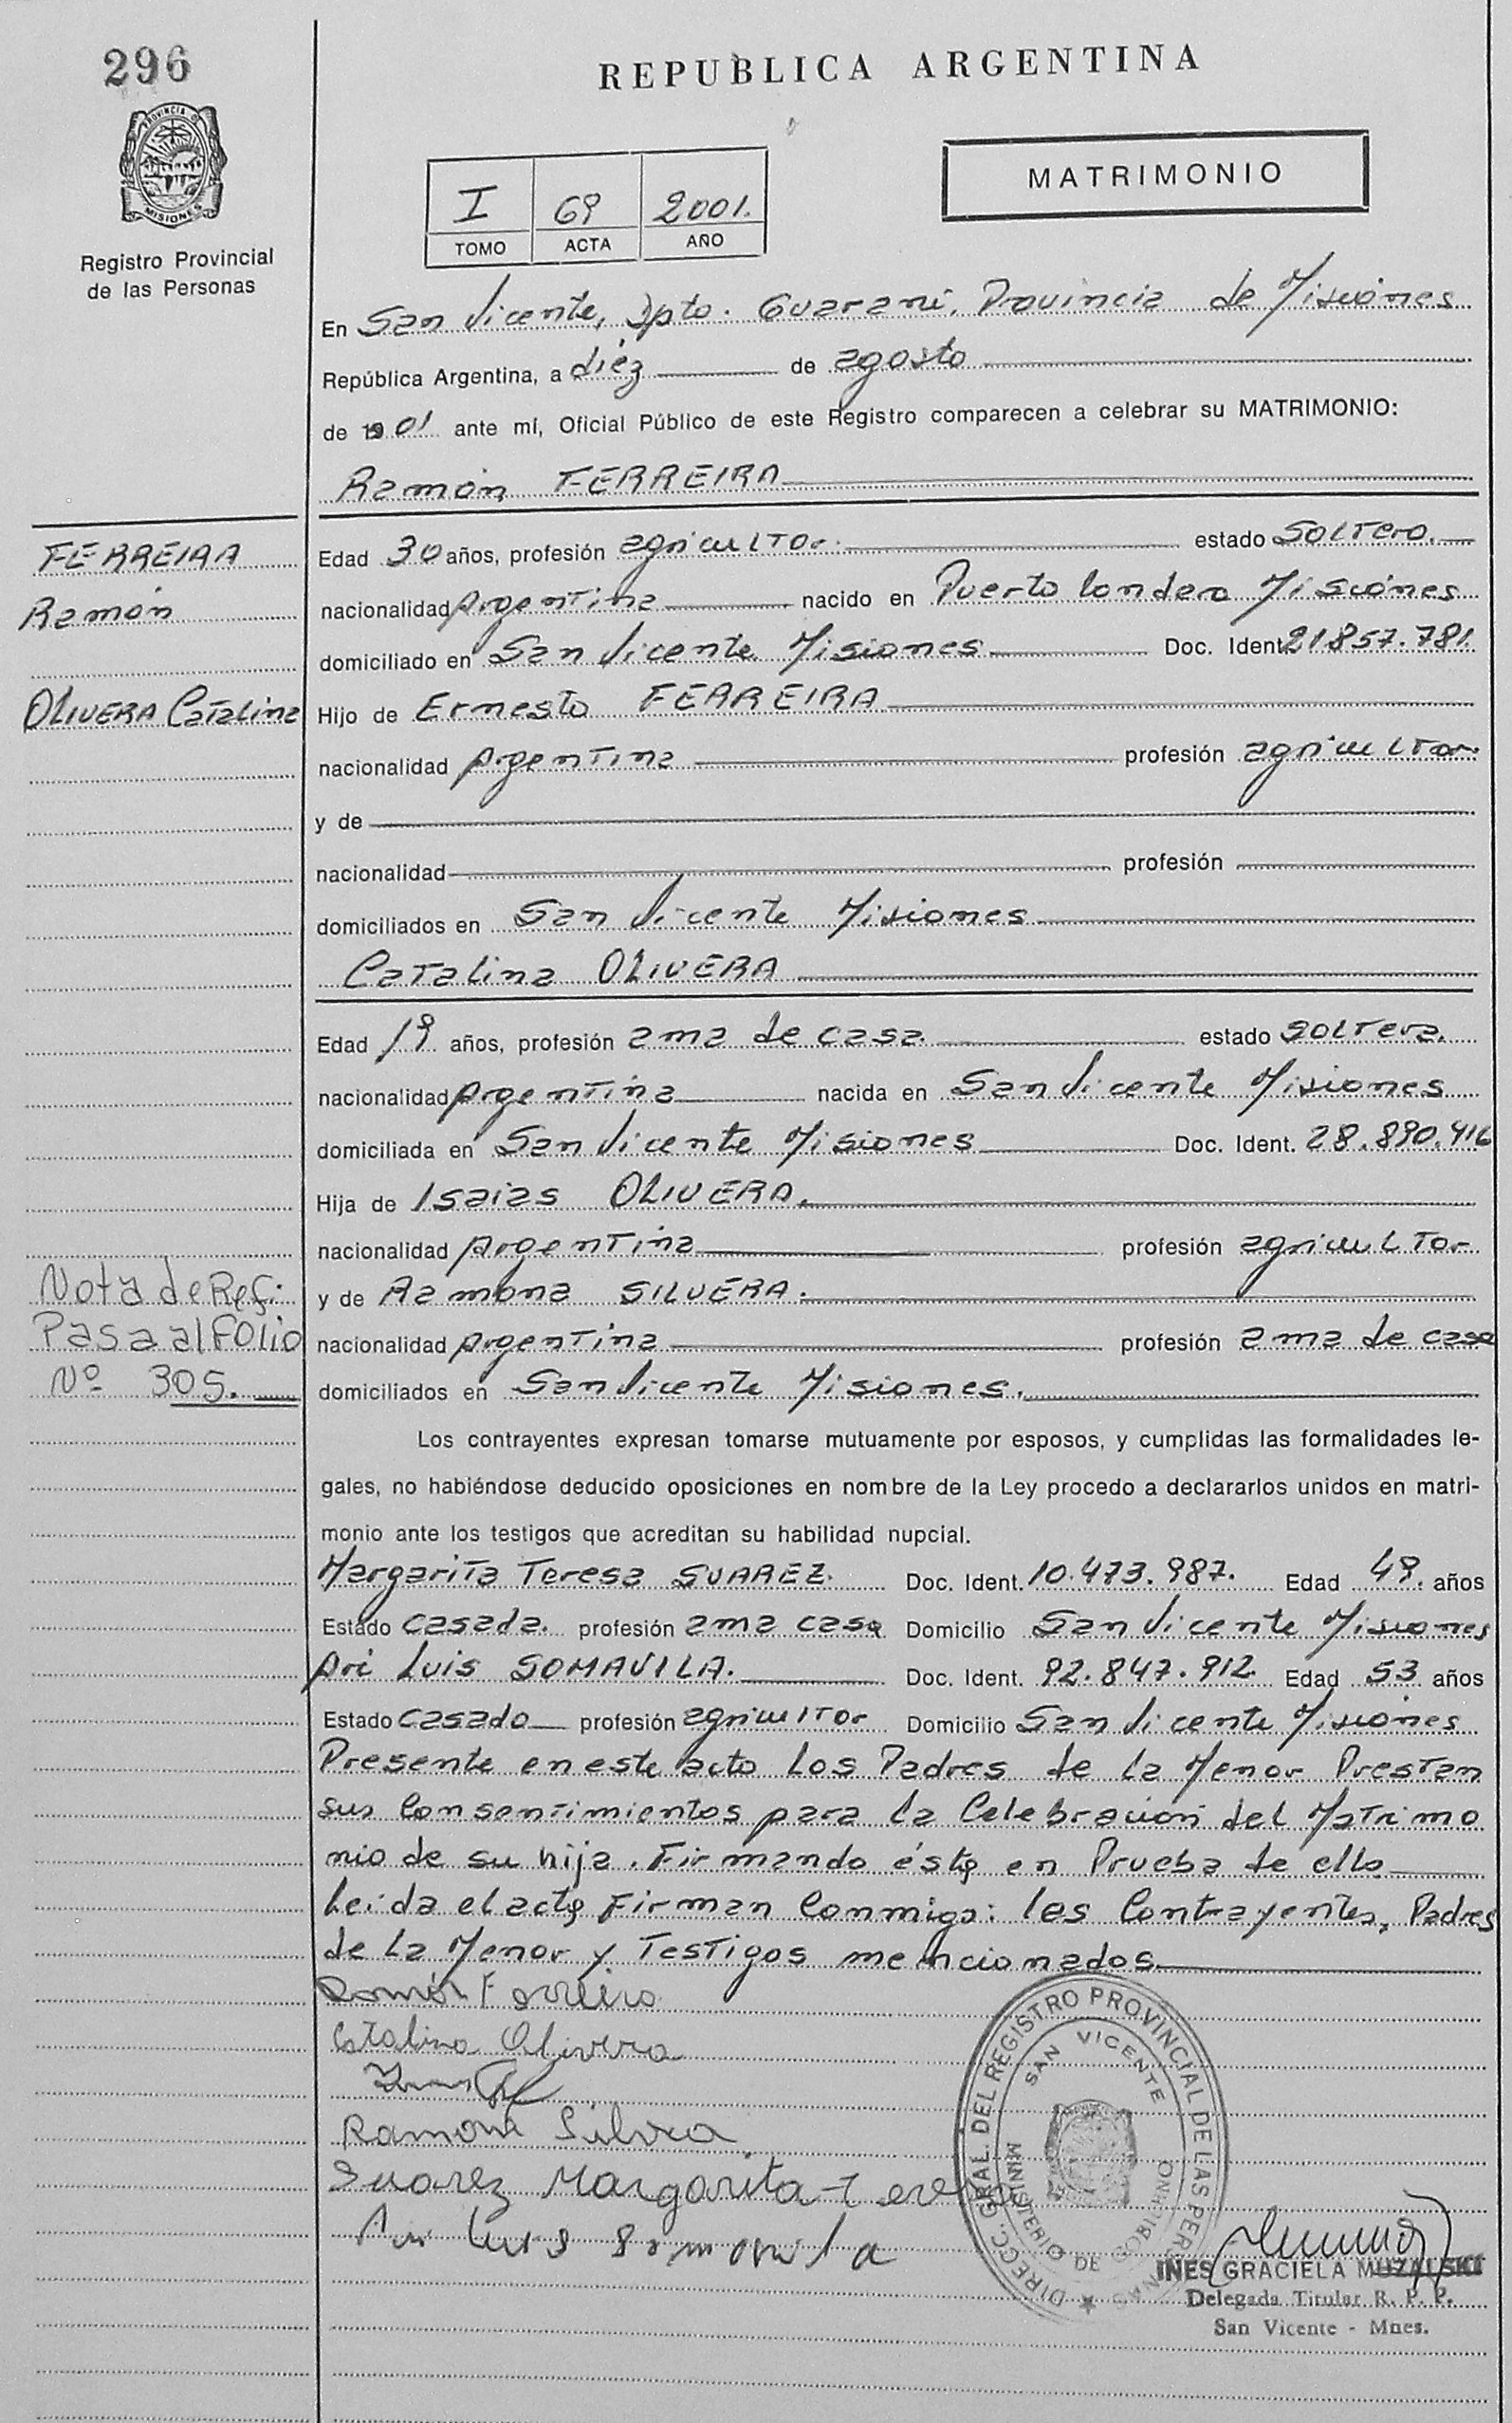 296
REPUBLICA ARGENTINA
PROVINCIA DE
MISIONES
Registro Provincial
de las Personas
I 69 2001.
TOMO ACTA AÑO
MATRIMONIO
En San Vicente, Dpto. Guaraní, Provincia de Misiones
República Argentina, a diéz de agosto
de 01 ante mí, Oficial Público de este Registro comparecen a celebrar su MATRIMONIO:
Ramón FERREIRA
FERREIRA
Ramón
OLIVERA Catalina
Edad 30 años, profesión agricultor. estado soltero.
nacionalidad Argentina nacido en Puerto Londero Misiones
domiciliado en San Vicente Misiones Doc. Ident 21.857.781.
Hijo de Ernesto FERREIRA
nacionalidad Argentina profesión agricultor.
y de
nacionalidad profesión
domiciliados en San Vicente Misiones
Catalina OLIVERA
Edad 19 años, profesión ama de casa. estado soltera.
nacionalidad Argentina nacida en San Vicente Misiones
domiciliada en San Vicente Misiones Doc. Ident. 28.890.416
Hija de Isaias OLIVERA.
nacionalidad Argentina profesión agricultor
y de Ramona SILVERA.
nacionalidad Argentina profesión ama de casa
domiciliados en San Vicente Misiones.
Nota de Ref:
Pasa al Folio
Nº 305.
Los contrayentes expresan tomarse mutuamente por esposos, y cumplidas las formalidades le-
gales, no habiéndose deducido oposiciones en nombre de la Ley procedo a declararlos unidos en matri-
monio ante los testigos que acreditan su habilidad nupcial.
Margarita Teresa SUAREZ. Doc. Ident. 10.473.987. Edad 49. años
Estado casada. profesión ama casa Domicilio San Vicente Misiones
Ari Luis SOMAVILA. Doc. Ident. 92.847.912. Edad 53 años
Estado casado profesión agricultor Domicilio San Vicente Misiones
Presente en este acto los Padres de la Menor Prestan
sus Consentimientos para la Celebración del Matrimo
nio de su hija. Firmando ésta en Prueba de ello
Leída el acta Firman Conmigo: los Contrayentes, Padres
de la Menor y Testigos mencionados
Ramón Ferreira
Catalina Olivera
Ramona Silvera
Suarez Margarita Teresa
Ari Luis Somavila
DIRECC. GRAL. DEL REGISTRO PROVINCIAL DE LAS PERSONAS
SAN VICENTE
MINISTERIO DE GOBIERNO
INES GRACIELA MUZALSKI
Delegada Titular R. P. P.
San Vicente - Mnes.